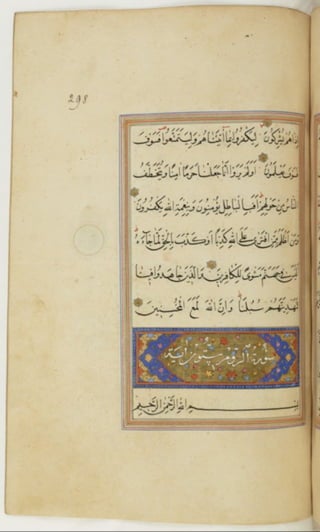 298
اذا هم يشركون ليكفروا بما اتيناهم وليتمتعوا فسوف
فسوف يعلمون اولم يروا انا جعلنا حرما امنا ويتخطف
الناس من حولهم افبالباطل يؤمنون وبنعمة الله يكفرون
ومن اظلم ممن افترى على الله كذبا او كذب بالحق لما جاءه
اليس في جهنم مثوى للكافرين والذين جاهدوا فينا
لنهدينهم سبلنا وان الله لمع المحسنين
سورة الروم ستون اية
بسم الله الرحمن الرحيم